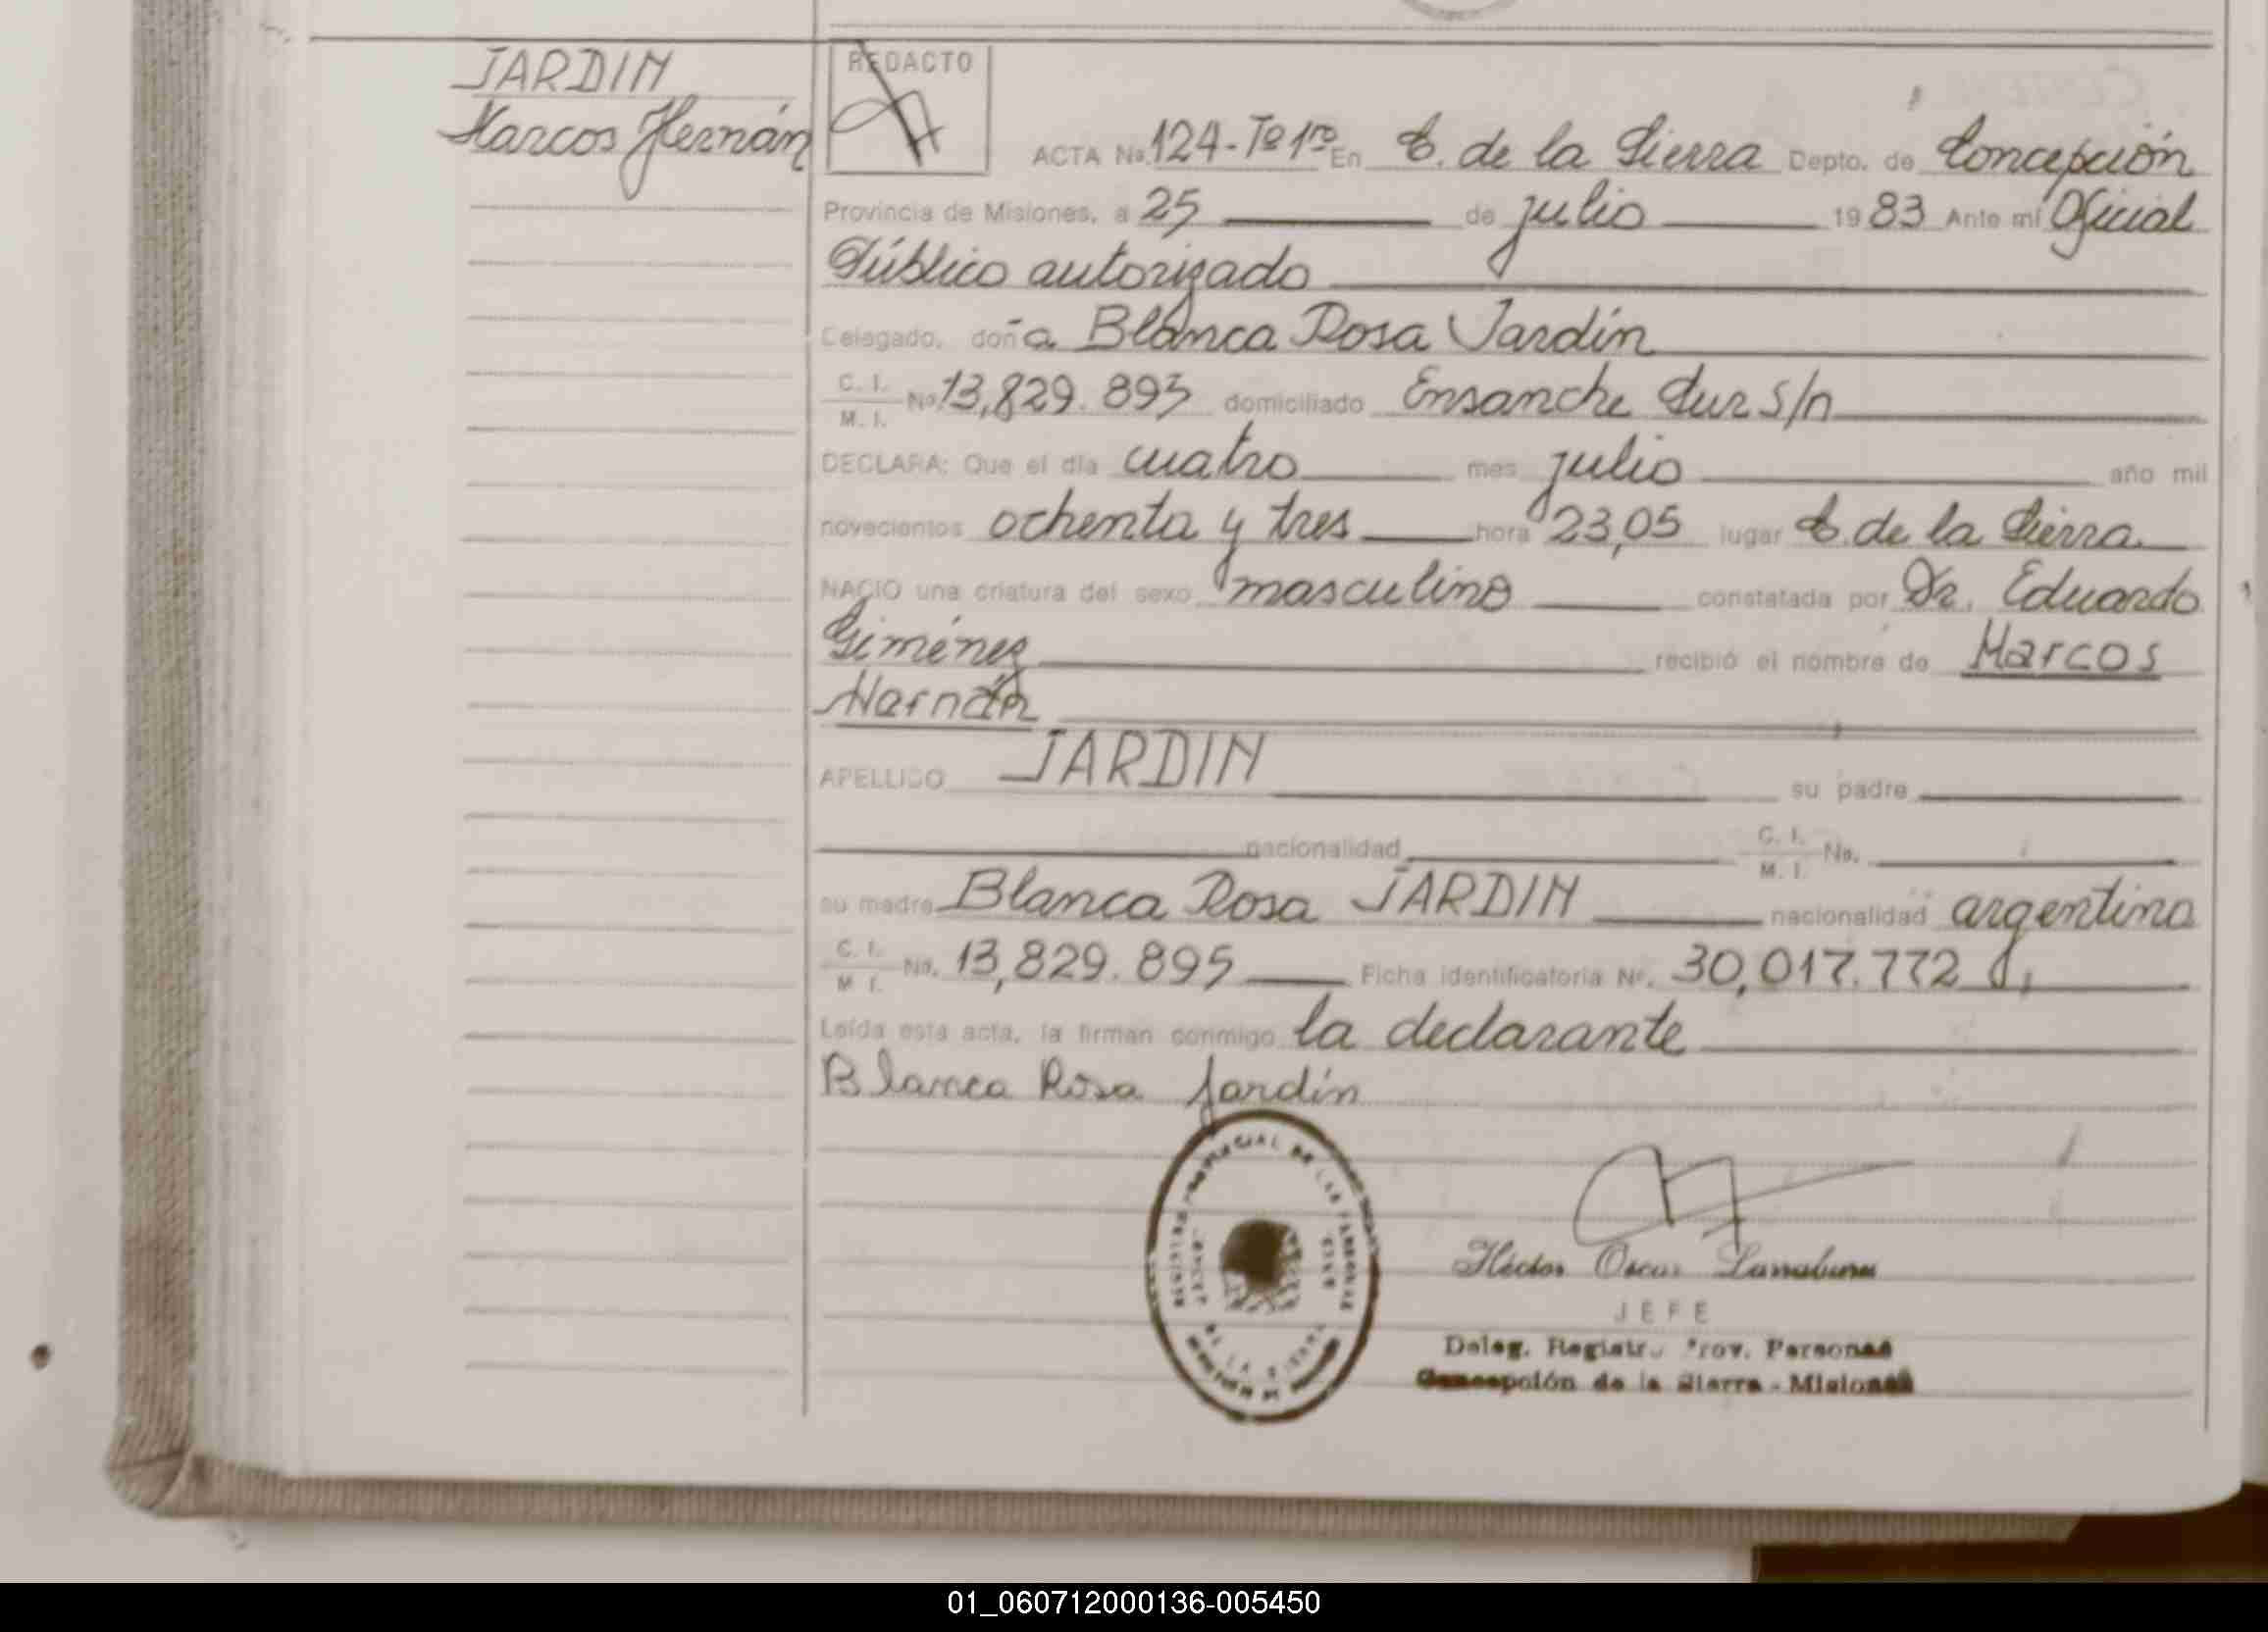 JARDIN
Marcos Hernán
REDACTO
ACTA No. 124-Tº 1ro En C. de la Sierra Depto. de Concepción
Provincia de Misiones, a 25 de julio 1983 Ante mí Oficial
Público autorizado
Delegado, doña Blanca Rosa Jardín
C. I. M. I. No 13,829.895 domiciliado Ensanche Sur s/n
DECLARA: Que el día cuatro mes julio año mil
novecientos ochenta y tres hora 23,05 lugar C. de la Sierra
NACIO una criatura del sexo masculino constatada por Dr. Eduardo
Giménez recibió el nombre de Marcos
Hernán
APELLIDO JARDIN su padre
nacionalidad C. I. M. I. No.
su madre Blanca Rosa JARDIN nacionalidad argentina
C. I. M. I. No. 13,829.895 Ficha identificatoria Nº. 30,017.772
Leída esta acta, la firman conmigo la declarante
Blanca Rosa Jardín
Héctor Oscar
JEFE
Deleg. Registro Prov. Personas
Concepción de la Sierra - Misiones
01_060712000136-005450